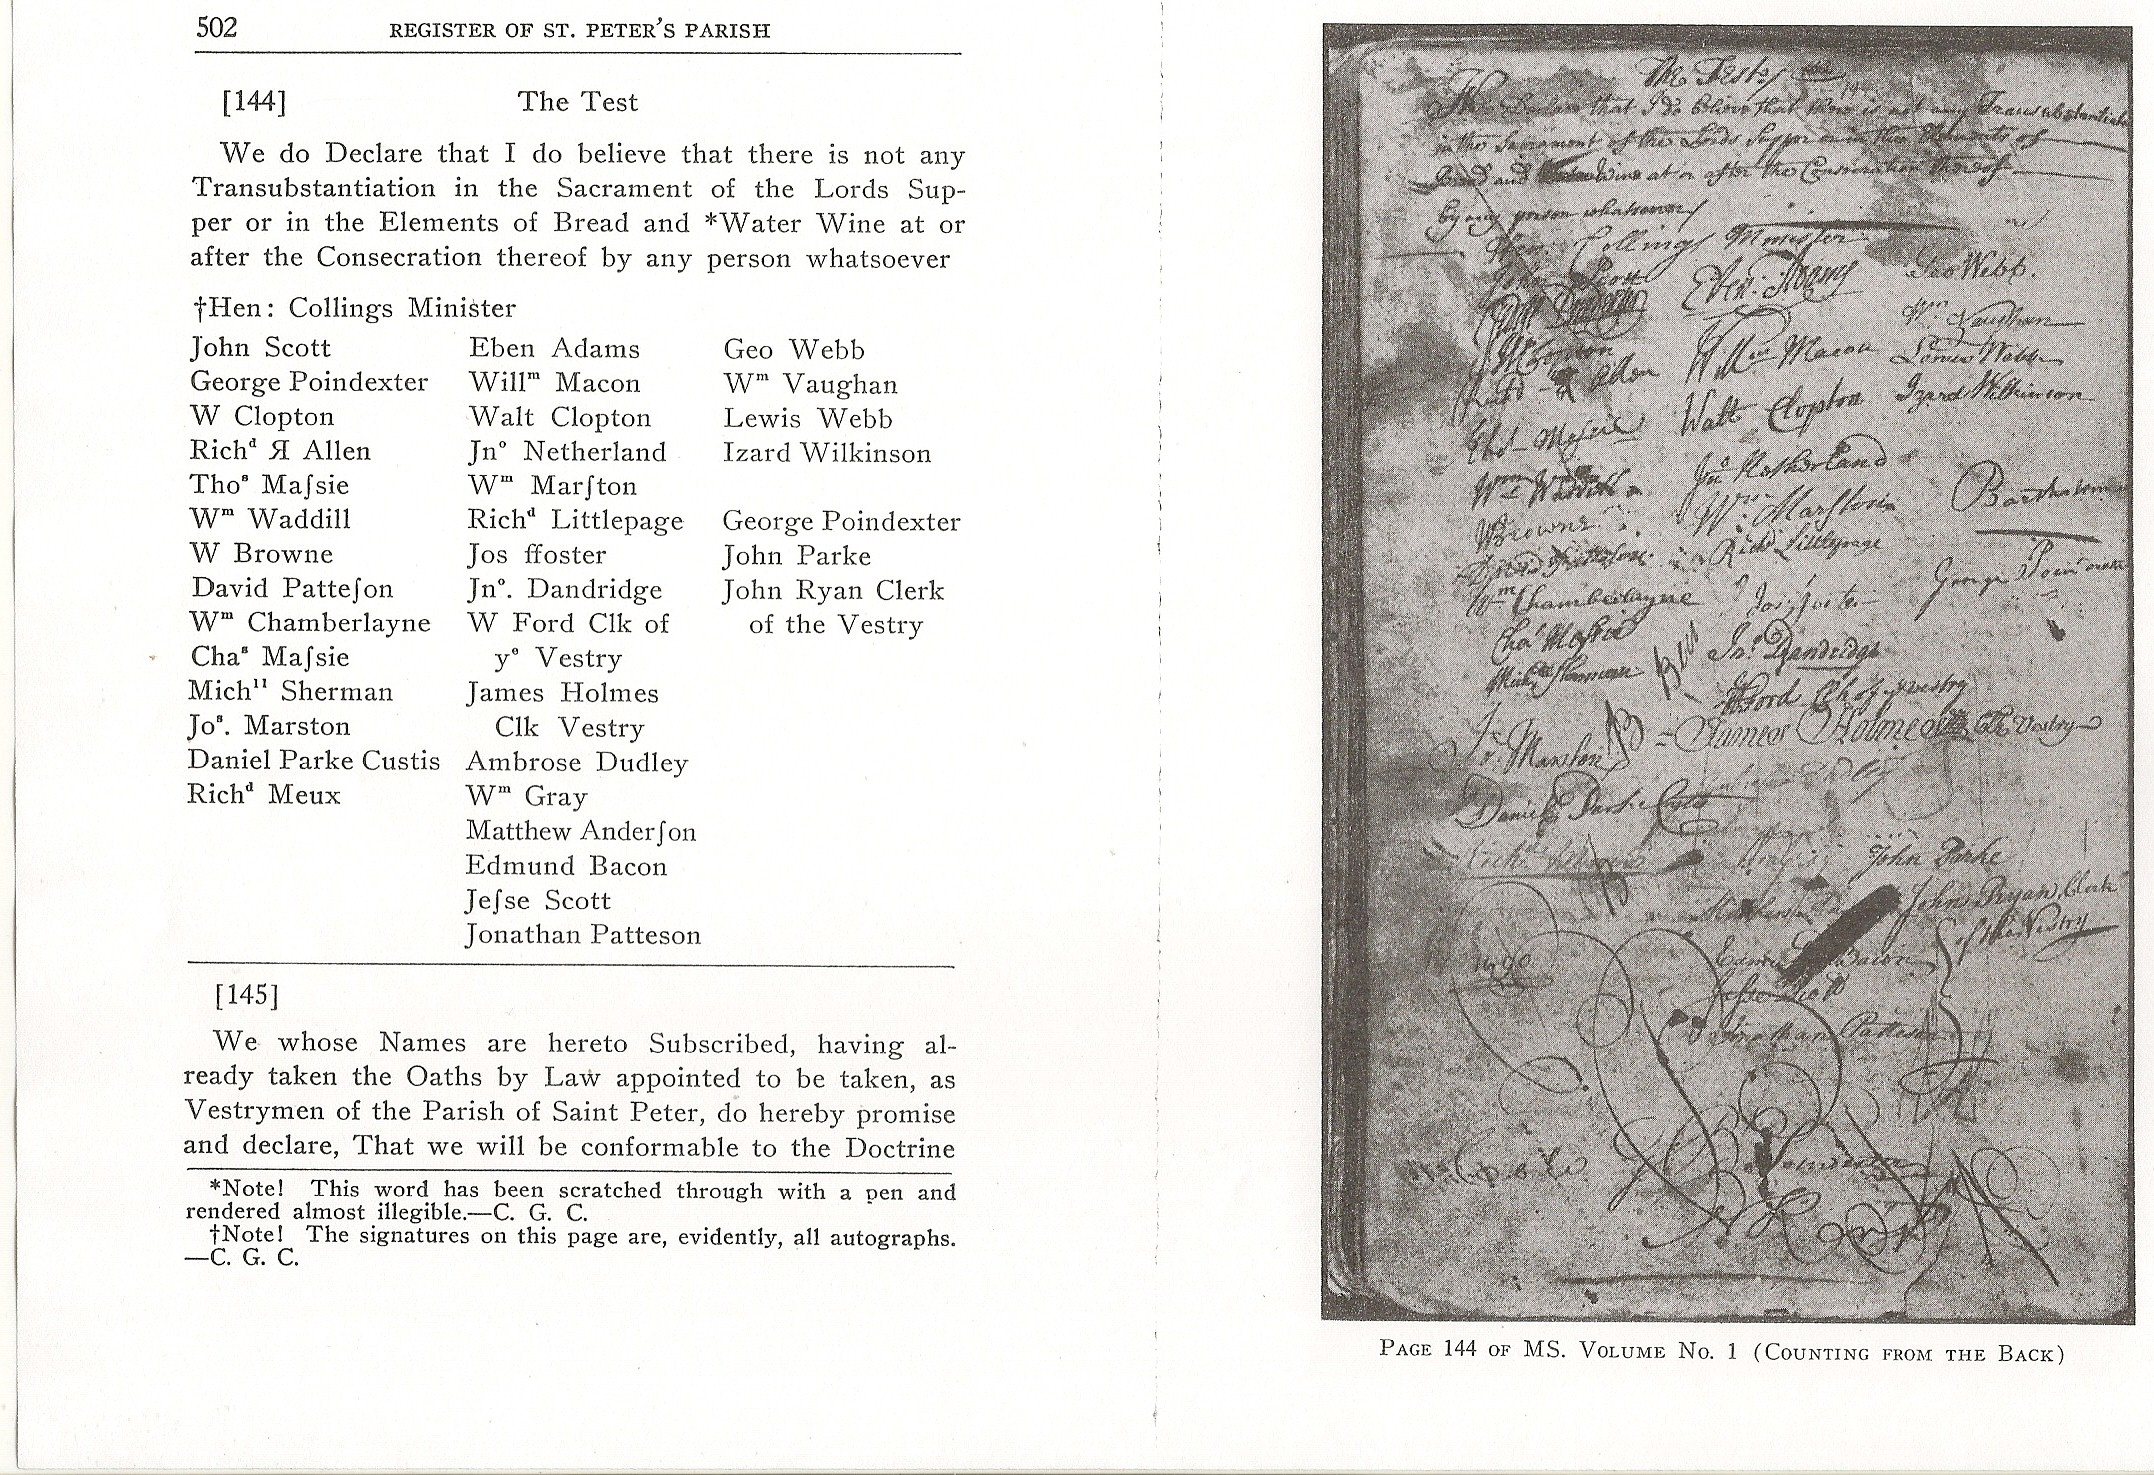 502 REGISTER OF ST. PETER'S PARISH
[144] The Test
We do Declare that I do believe that there is not any
Transubstantiation in the Sacrament of the Lords Sup-
per or in the Elements of Bread and *Water Wine at or
after the Consecration thereof by any person whatsoever
†Hen: Collings Minister
John Scott
George Poindexter
W Clopton
Richᵈ Я Allen
Thoˢ Maſsie
Wᵐ Waddill
W Browne
David Patteſon
Wᵐ Chamberlayne
Chaˢ Maſsie
Michˡˡ Sherman
Joˢ. Marston
Daniel Parke Custis
Richᵈ Meux
Eben Adams
Willᵐ Macon
Walt Clopton
Jnº Netherland
Wᵐ Marſton
Richᵈ Littlepage
Jos ffoster
Jnº. Dandridge
W Ford Clk of
yᵉ Vestry
James Holmes
Clk Vestry
Ambrose Dudley
Wᵐ Gray
Matthew Anderſon
Edmund Bacon
Jeſse Scott
Jonathan Patteson
Geo Webb
Wᵐ Vaughan
Lewis Webb
Izard Wilkinson
George Poindexter
John Parke
John Ryan Clerk
of the Vestry
[145]
We whose Names are hereto Subscribed, having al-
ready taken the Oaths by Law appointed to be taken, as
Vestrymen of the Parish of Saint Peter, do hereby promise
and declare, That we will be conformable to the Doctrine
*Note! This word has been scratched through with a pen and
rendered almost illegible.—C. G. C.
†Note! The signatures on this page are, evidently, all autographs.
—C. G. C.
The Test
Declare that I do believe that there is not any Transubstantiation
in the Sacrament of the Lords Supper or in the Elements of
Bread and Wine at or after the Consecration thereof
by any person whatsoever
Hen: Collings Minister
John Scott
Eben: Adams
Geo Webb.
Wᵐ Vaughan
Allen
Willᵐ Macon
Lewis Webb
Walt Clopton
Izard Wilkinson
Wᵐ Waddill
Jnº Netherland
WBrowne
Wᵐ Marſton
Richd Littlepage
Wᵐ Chamberlayne
George
Chaˢ Maſsie
Jnº Dandridge
Joˢ. Marston
James Holmes Clk Vestry
Daniel Parke Custis
John Parke
John Ryan Clerk
of the Vestry
Bacon
Jeſse Scott
Jonathan Patteson
1690
PAGE 144 OF MS. VOLUME NO. 1 (COUNTING FROM THE BACK)